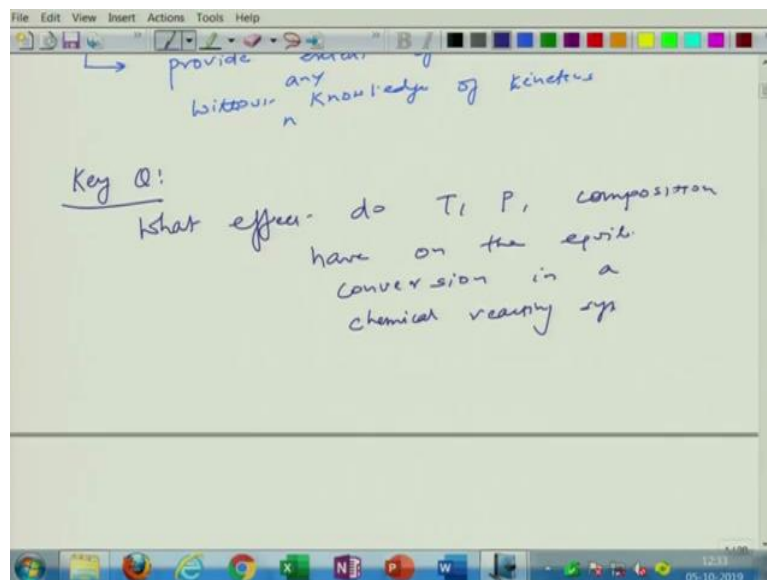 File Edit View Insert Actions Tools Help
provide
any
without Knowledge of Kinetics
n
Key Q:
What effect do T, P, composition
have on the equil.
conversion in a
chemical reacting sys
12:33
05-10-2019